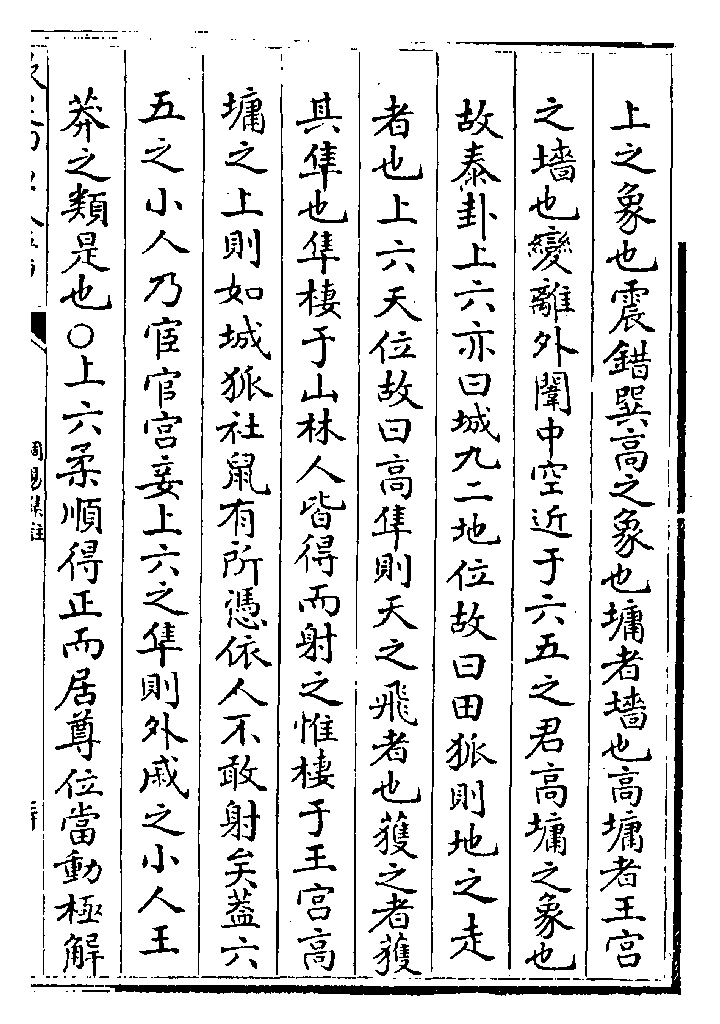 上之象也震錯巽高之象也墉者墻也高墉者王宫
之墻也變離外闈中空近于六五之君高墉之象也
故泰卦上六亦曰城九二地位故曰田狐則地之走
者也上六天位故曰高隼則天之飛者也獲之者獲
其隼也隼棲于山林人皆得而射之惟棲于王宫高
墉之上則如城狐社鼠有所憑依人不敢射矣蓋六
五之小人乃宦官宫妾上六之隼則外戚之小人王
莽之類是也○上六柔順得正而居尊位當動極解
周易集註